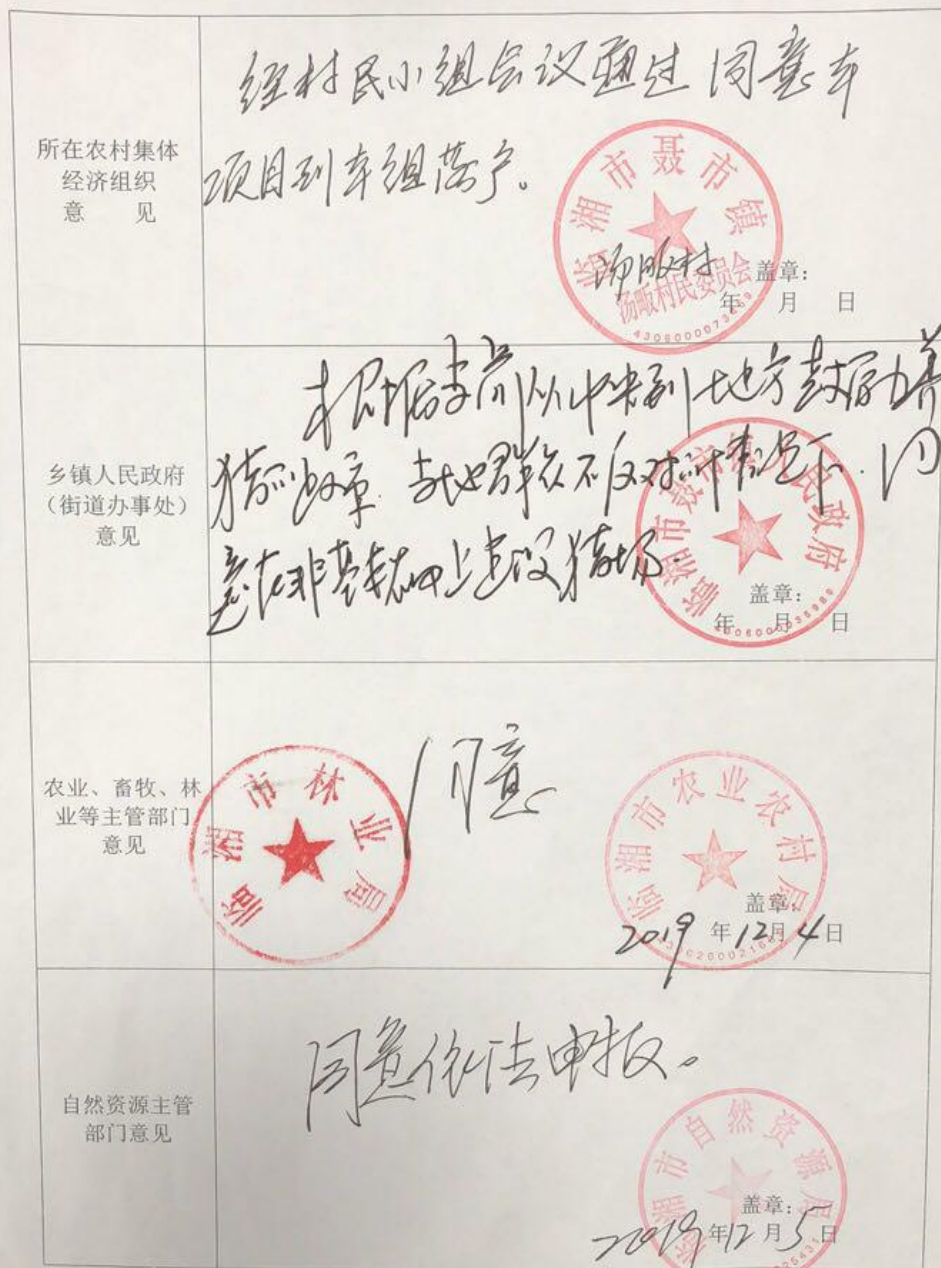 所在农村集体
经济组织
意 见
经村民小组会议通过同意本
项目到本组落户。
临湘市聂市镇
汤畈村民委员会
汤畈村
盖章：
年 月 日
乡镇人民政府
（街道办事处）
意见
根据当前从中央到地方鼓励养
猪的政策，当地群众不反对的情况下，同
意在非基本农田上建设猪场。
临湘市聂市镇人民政府
盖章：
年 月 日
农业、畜牧、林
业等主管部门
意见
同意
临湘市林业局
临湘市农业农村局
盖章：
2019 年 12 月 4 日
自然资源主管
部门意见
同意依法申报。
临湘市自然资源局
盖章：
2019 年 12 月 5 日